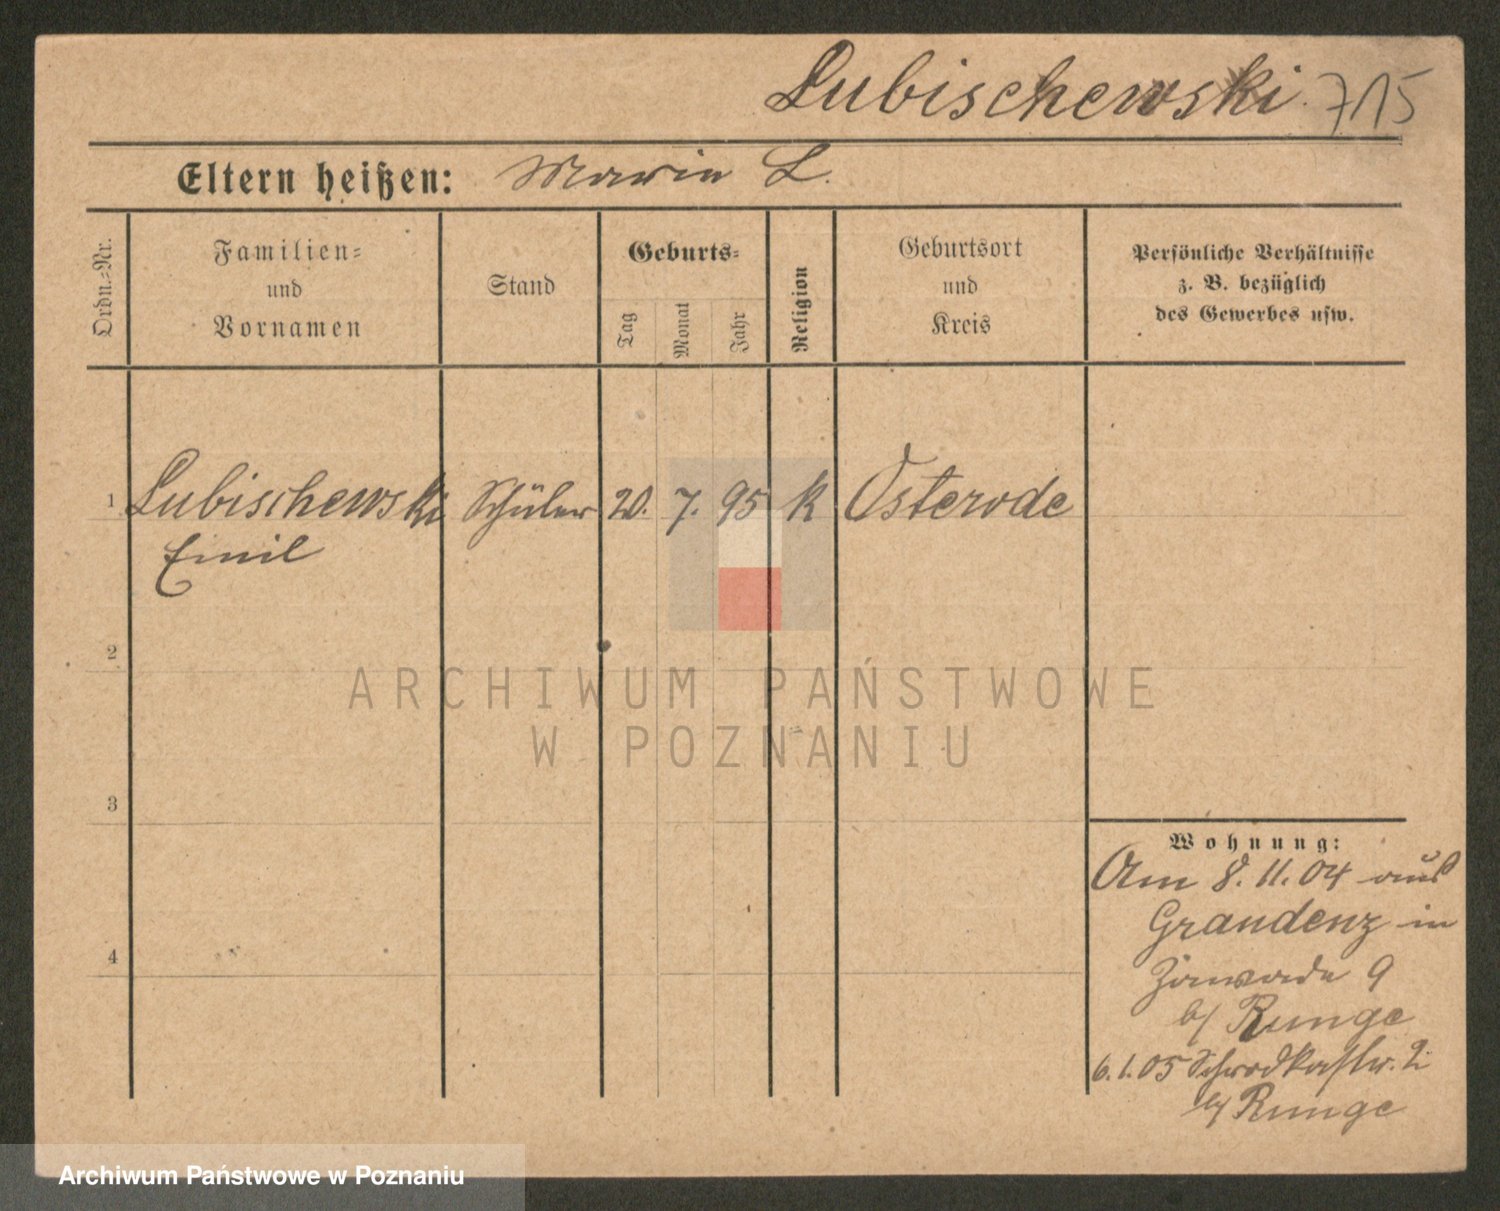 Lubischewski. 715
Eltern heißen: Maria L.
Ordn.-Nr.
Familien-
und
Vornamen
Stand
Geburts-
Tag
Monat
Jahr
Religion
Geburtsort
und
Kreis
Persönliche Verhältnisse
z. B. bezüglich
des Gewerbes usw.
1 Lubischewski Schüler 20. 7. 95 k Osterode
Emil
2
3
4
Wohnung:
Am 8. 11. 04 aus
Graudenz in
9
b/ Runge
6. 1. 05 Schrodkastr. 2
b/ Runge
ARCHIWUM PAŃSTWOWE
W POZNANIU
Archiwum Państwowe w Poznaniu